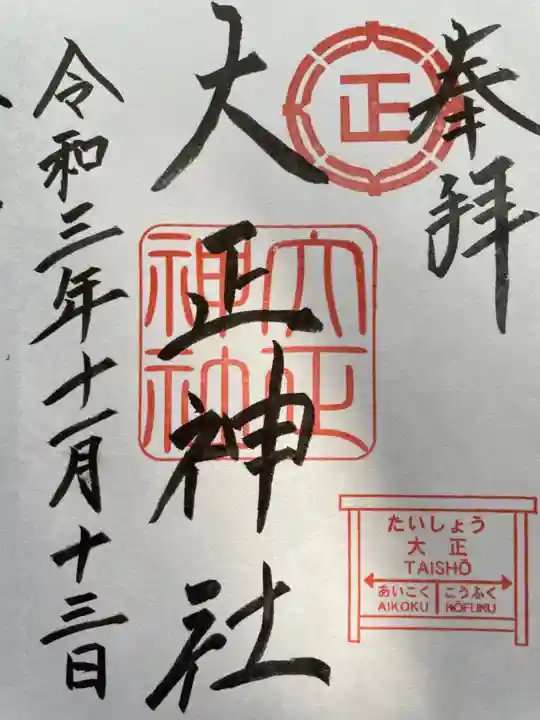 奉拝
正
大正神社
大正神社
令和三年十一月十三日
たいしょう
大正
TAISHŌ
あいこく こうふく
AIKOKU KŌFUKU